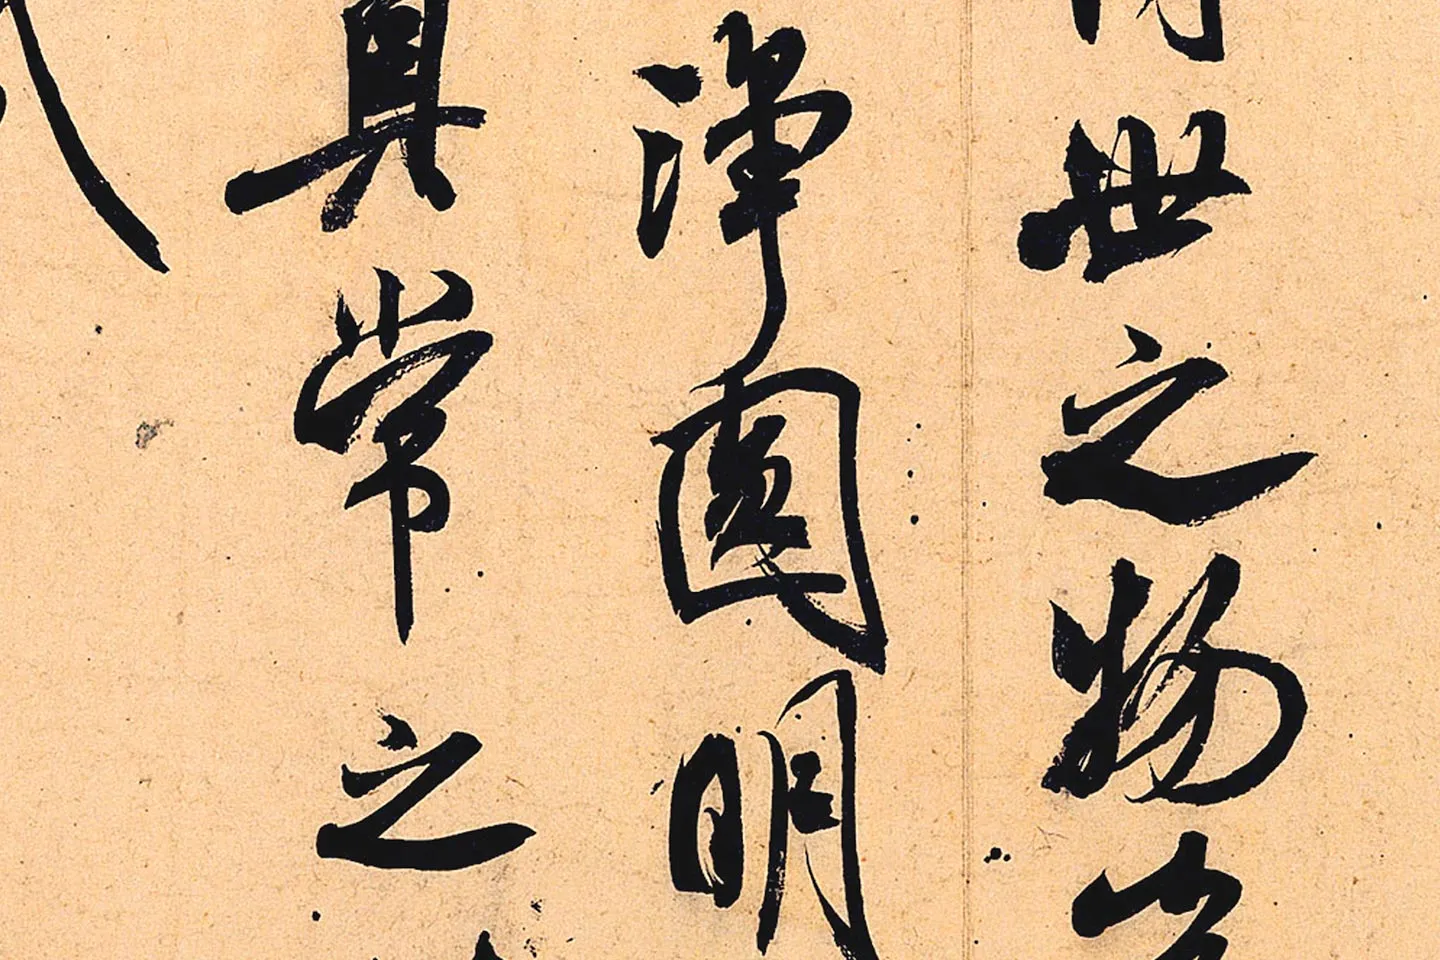 世之物
淨圓明
真常之